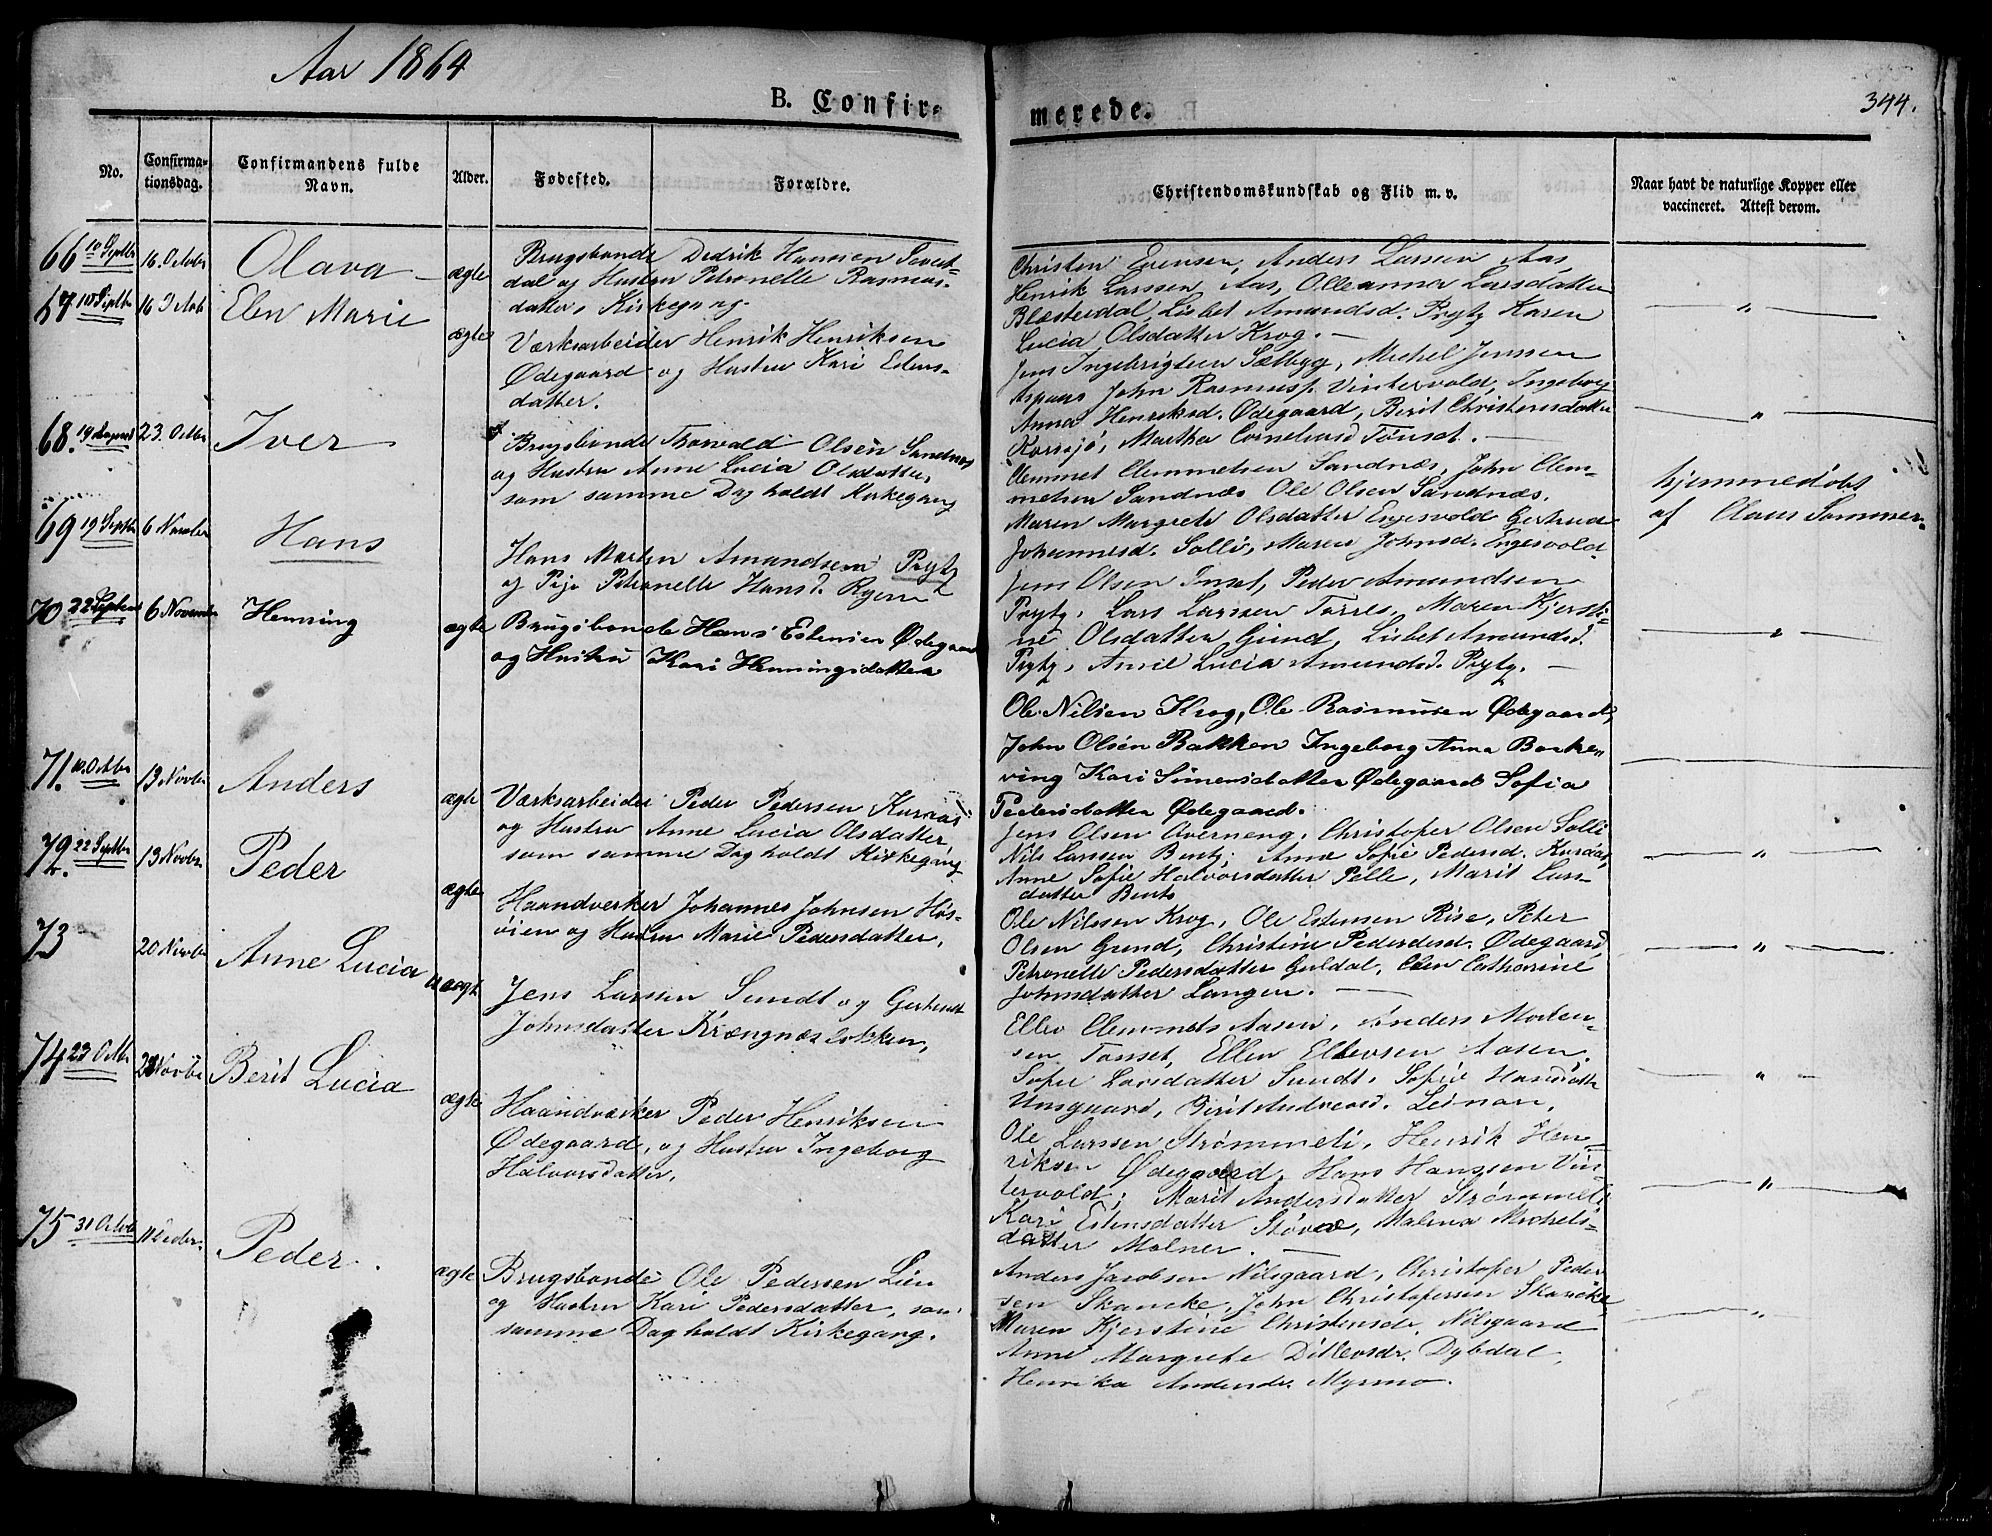 Aar 1864
B. Confir-
merede.
344.
No.
Confirma-
tionsdag.
Confirmandens fulde
Navn.
Alder.
Fødested.
Forældre.
Christendomskundskab og Flid m. v.
Naar havt de naturlige Kopper eller
vaccineret. Attest derom.
66 10 Septbr 16. Octobr Olava ægte
Brugsbonde Dedrik Hansen
dal og Hustru Petronelle Rasmus-
datter, Kirkegang.
Christen Evensen, Anders Larssen Aas,
Henrik Larssen Aas, Olleanna Larsdatter
Blæsterdal, Lisbet Amundsd. Prytz Karen
Lucia Olsdatter Krog. —
67 10 Septbr 16 Octob Elen Marie ægte
Værksarbeider Henrik Henriksen
Ødegaard og Hustru Kari Estens-
datter.
Jens Ingebrigtsen Sætbyg, Michel Jenssen
Aspaas John Rasmuss. Vintervold, Ingeborg
Anna Henriksd. Ødegaard, Berit Christensdatter
Korssjø, Martha Corneliusd Tønset. —
68. 19 August 23. Octbr Iver
Brugsbonde Thorvald Olsen Sandnæs
og Hustru Anne Lucia Olsdatter,
som samme Dag holdt Kirkegang
Clemmet Clemmetsen Sandnæs, John Clem-
metsen Sandnæs Ole Olsen Sandnæs.
Maren Margrete Olsdatter Engesvold Gertrud
Johannesd. Solli, Maren Johnsd. Engesvold
hjemmedøbt
af Claus Sommer
69 19 Septbr 6 Novbr Hans
Hans Morten Amundsen Prytz
og Pige Petronelle Hansd. Ryen
Jens Olsen Inset, Peder Amundsen
Prytz, Lars Larssen Torres, Maren Kjersti-
ne Olsdatter Grind, Lisbet Amundsd.
Prytz, Anne Lucia Amundsd. Prytz. —
70 22 Septembr 6 November Henning ægte
Brugsbonde Hans Estensen Ødegaard
og Hustru Kari Henningsdatter
Ole Nilsen Krog, Ole Rasmusen Ødegaard,
John Olsen Bakken Ingeborg Anna Borke-
ving Kari Simensdatter Ødegaard Sofia
Pedersdatter Ødegaard.
71. 10. Octbr 13 Novbr Anders ægte
Værksarbeider Peder Pedersen Kuraas
og Hustru Anne Lucia Olsdatter,
som samme Dag holdt Kirkegang
Jens Olsen Averneng, Christopher Olsen Solli
Nils Larssen Bentz, Anne Sofie Pedersd. Kuraas,
Anne Sofie Halvorsdatter Pelle, Marit Lars-
datter Bentz
72. 22 Septbr 13 Novbr. Peder ægte
Haandverker Johannes Johnsen Høs-
øien og Hustru Marie Pedersdatter,
Ole Nilssen Krog, Ole Estensen Rise, Peter
Olsen Grind, Christine Pedersd. Ødegaard,
Petronelle Pedersdatter Guldal, Elen Catharine
Johnsdatter Langen. —
73 20 Novbr Anne Lucia uægte
Jens Larssen Sundt og Gertrud
Johnsdatter Krængnæsbakken,
Ellev Clemmets Aasen, Anders Morten-
sen Tønset, Ellen Ellevsen Aasen,
Sofie Larsdatter Sundt, Sofie Hansdatter
Unsgaard, Berit Andreasd. Leinan,
74 23 Octbr Novbr Berit Lucia ægte
Haandværker Peder Henriksen
Ødegaard, og Hustru Ingeborg
Halvorsdatter,
Ole Larssen Strømmeli, Henrik Hen-
riksen Ødegaard, Hans Hanssen Vin-
tervold, Marit Andersdatter Strømmeli,
Kari Estensdatter Støvne, Malena Michels-
datter Molner. —
75 31 Octob 11 Decbr. Peder. ægte
Brugsbonde Ole Pedersen Lien
og Hustru Kari Pedersdatter, som
samme Dag holdt Kirkegang.
Anders Jacobsen Nilsgaard, Christopher Peder-
sen Skancke, John Christophersen Skancke,
Maren Kjerstine Christensdr. Nilsgaard
Anne Margrete Ditlevsdr. Dybdal,
Henrika Andersdr. Myrmo.